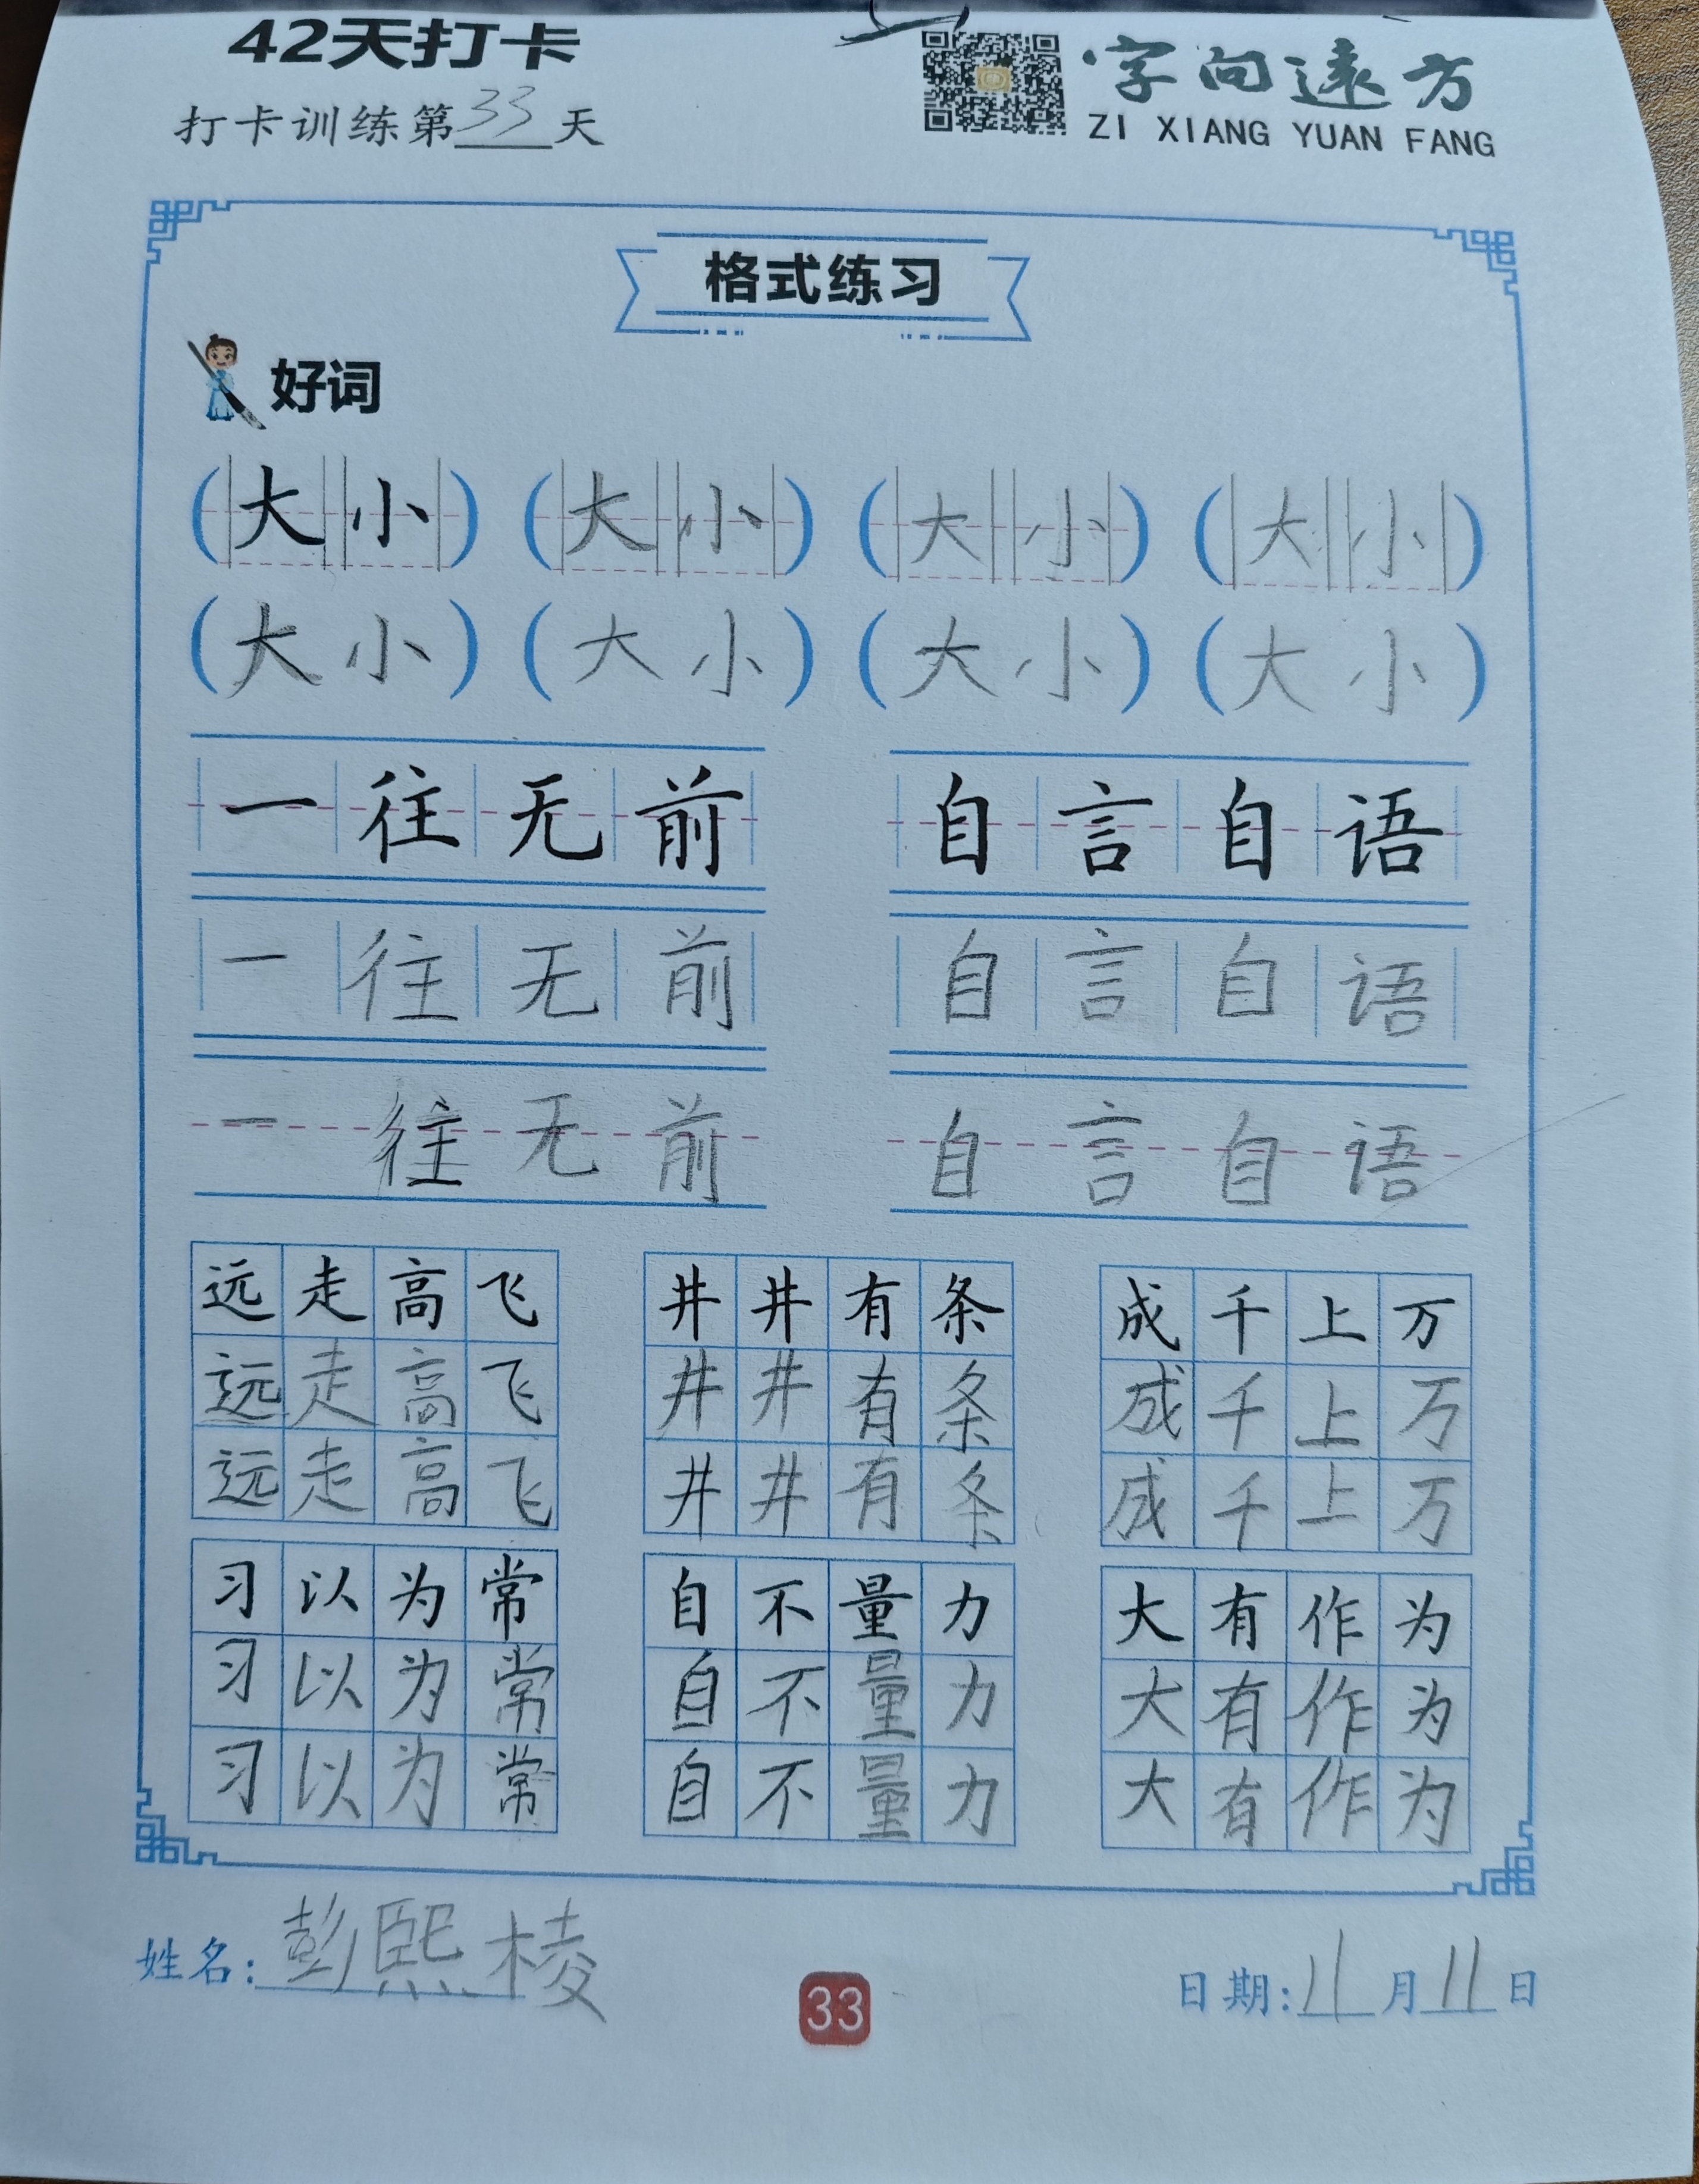 42天打卡
打卡训练第33天
字向遠方
ZI XIANG YUAN FANG
格式练习
好词
(大小) (大小) (大小) (大小)
(大小) (大小) (大小) (大小)
一往无前 自言自语
一往无前 自言自语
一往无前 自言自语
远走高飞 井井有条 成千上万
远走高飞 井井有条 成千上万
远走高飞 井井有条 成千上万
习以为常 自不量力 大有作为
习以为常 自不量力 大有作为
习以为常 自不量力 大有作为
姓名:彭熙棱
日期:11月11日
33